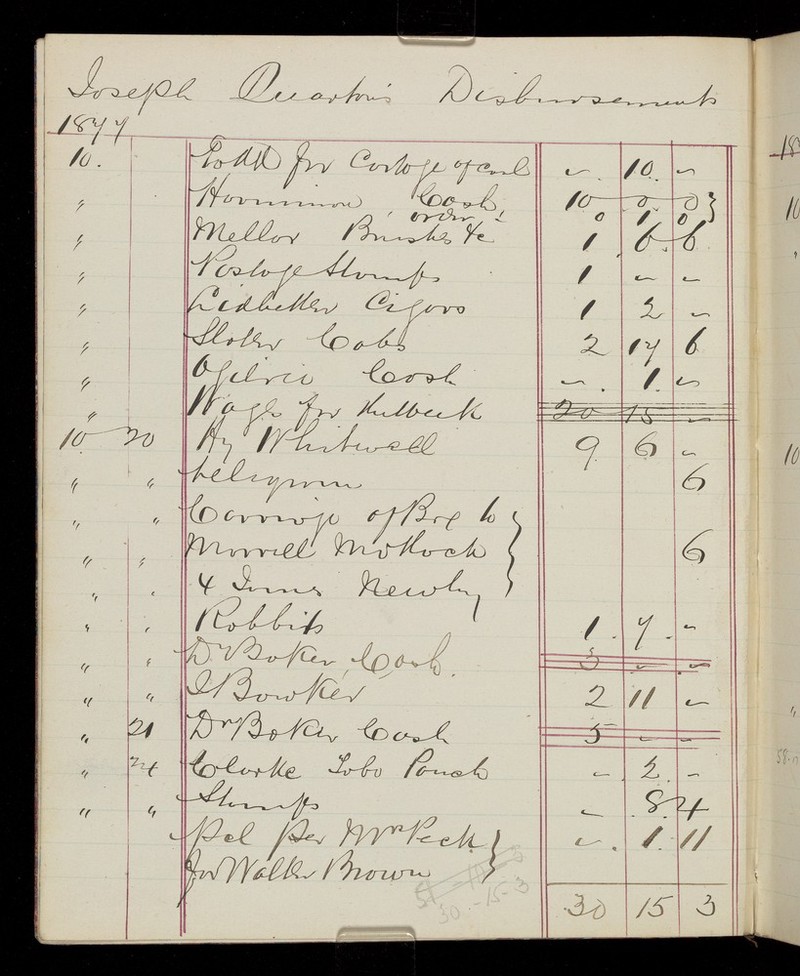 Joseph Quarton's Disbursements
1877
10. Todd for Cartage of coal - . 10 . -
" Cash 10 0 0 }
order 0 1 0
" Mellor Brushes &c 1 . 6 . 6
" Postage Stamps 1 - -
" Lidbetter Cigars 1 2 -
" Slater Cabs 2 17 6
" Ogilvie Cash - . 1 . -
" Wages for 20 15 -
10 20 Hy Whitwell 9 . 6 -
" " telegram 6
" " Carriage of Box to }
" " Morrell Matlock } 6
" " & Innes Newby }
" " Rabbits 1 . 7 . -
" " Dr Baker Cash . 3 - -
" " J Bowker 2 11 -
" 21 Dr Baker Cash 5 - -
" 24 Clarke Tobo Pouch - . 2 . -
" " Stamps - . 8 . 4
Pd per Mr Peck } - . 1 . 11
for Walter Brown }
30 - 15 - 3
30 15 3